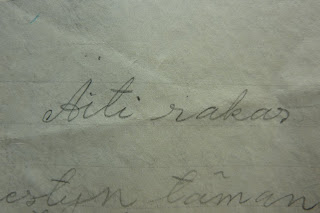 Äiti rakas
estun tämän